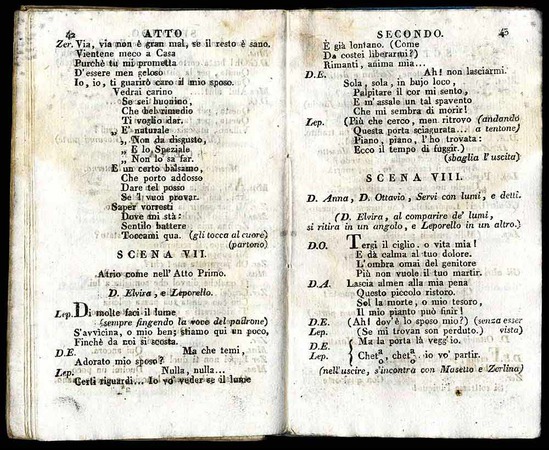 42 ATTO
Zer. Via, via non è gran mal, se il resto è sano.
Vientene meco a Casa
Purchè tu mi prometta
D'essere men geloso
Io, io, ti guarirò caro il mio sposo.
Vedrai carino
Se sei buonino,
Che bel rimedio
Ti voglio dar.
„ E' naturale
„ Non da disgusto,
„ E lo Speziale
„ Non lo sa far.
E un certo balsamo,
Che porto addosso
Dare tel posso
Se 'l vuoi provar.
Saper vorresti
Dove mi stà:
Sentilo battere
Toccami qua. (gli tocca al cuore)
(partono)
SCENA VII.
Atrio come nell' Atto Primo.
D. Elvira, e Leporello.
Lep. Di molte faci il lume
(sempre fingendo la voce del padrone)
S'avvicina, o mio ben; stiamo qui un poco,
Finchè da noi si scosta.
D.E. Ma che temi,
Adorato mio sposo?
Lep. Nulla, nulla...
Certi riguardi... Io vo' veder se il lume
SECONDO. 43
È già lontano. (Come
Da costei liberarmi?)
Rimanti, anima mia...
D.E. Ah! non lasciarmi.
Sola, sola, in bujo loco,
Palpitare il cor mi sento,
E m'assale un tal spavento
Che mi sembra di morir!
Lep. (Più che cerco, men ritrovo (andando
Questa porta sciagurata... a tentone)
Piano, piano, l'ho trovata:
Ecco il tempo di fuggir.)
(sbaglia l'uscita)
SCENA VIII.
D. Anna, D. Ottavio, Servi con lumi, e detti.
(D. Elvira, al comparire de' lumi,
si ritira in un angolo, e Leporello in un altro.)
D.O. Tergi il ciglio. o vita mia!
E dà calma al tuo dolore.
L'ombra omai del genitore
Più non vuole il tuo martir.
D.A. Lascia almen alla mia pena
Questo piccolo ristoro.
Sol la morte, o mio tesoro,
Il mio pianto può finir!
D.E. (Ah! dov'è lo sposo mio?) (senza esser
Lep. (Se mi trovan son perduto.) vista)
D.E. { Ma la porta là vegg'io.
Lep. { Cheta/o cheta/o io vo' partir.
(nell'uscire, s'incontra con Masetto e Zerlina)